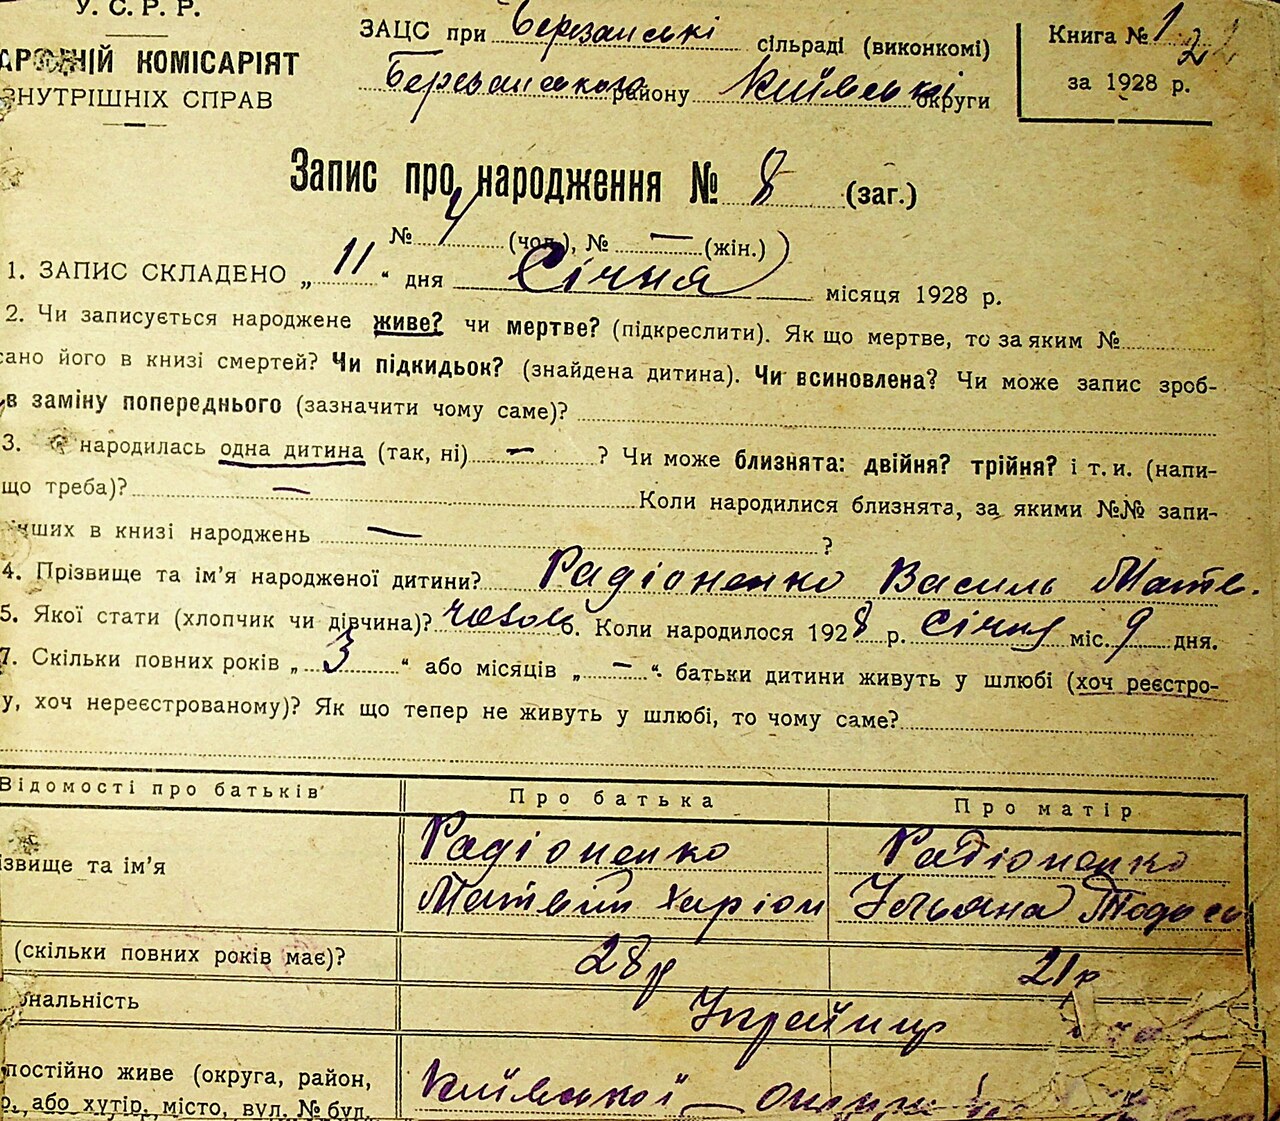 У. С. Р. Р.
АРОДНІЙ КОМІСАРІЯТ
ВНУТРІШНІХ СПРАВ
ЗАЦС при Березанські сільраді (виконкомі)
Березанського району Київські округи
Книга № 1
за 1928 р.
Запис про народження № 8 (заг.)
№ 4 (чол.), № — (жін.)
1. ЗАПИС СКЛАДЕНО „ 11 “ дня Січня місяця 1928 р.
2. Чи записується народжене живе? чи мертве? (підкреслити). Як що мертве, то за яким №
сано його в книзі смертей? Чи підкидьок? (знайдена дитина). Чи всиновлена? Чи може запис зроб-
в заміну попереднього (зазначити чому саме)?
3. народилась одна дитина (так, ні) — ? Чи може близнята: двійня? трійня? і т. и. (напи-
що треба)? — Коли народилися близнята, за якими №№ запи-
інших в книзі народжень — ?
4. Прізвище та ім'я народженої дитини? Радіоненко Василь Матв.
5. Якої стати (хлопчик чи дівчина)? чолов 6. Коли народилося 1928 р. Січня міс. 9 дня.
7. Скільки повних років „ 3 “ або місяців „ — “ батьки дитини живуть у шлюбі (хоч реєстро-
у, хоч нереєстрованому)? Як що тепер не живуть у шлюбі, то чому саме?
Відомості про батьків Про батька Про матір
ізвище та ім'я Радіоненко Радіоненко
Матвій Харіон Ульяна Тодос
(скільки повних років має)? 28 р 21 р
ональність Україниц
постійно живе (округа, район,
р., або хутір, місто, вул. № буд. Київської округи